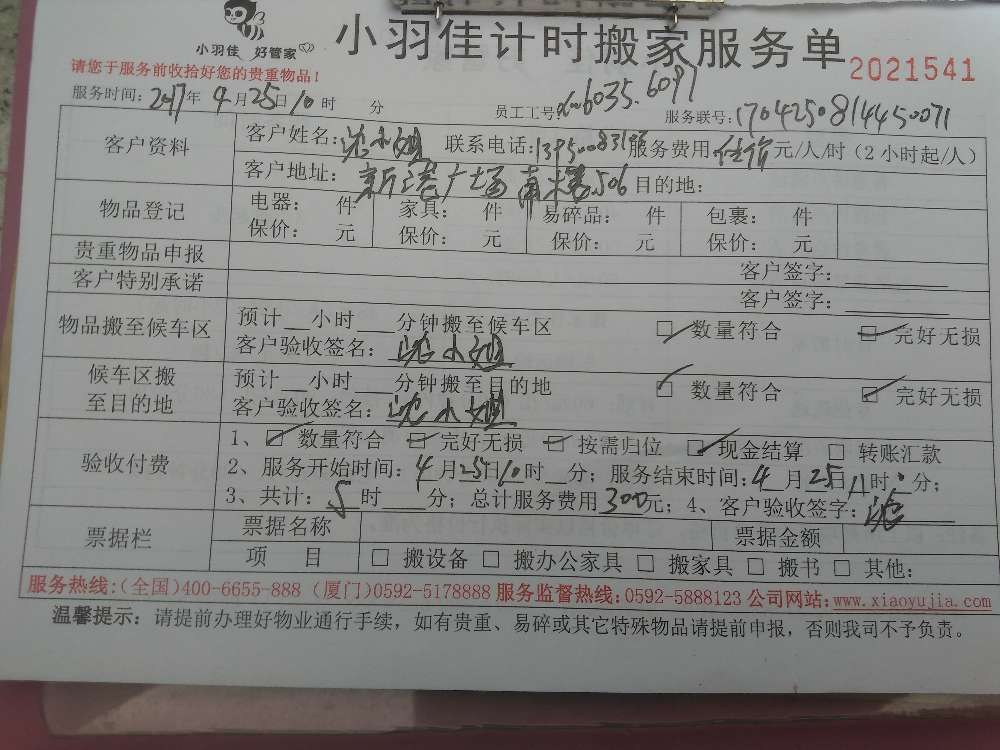 小羽佳 好管家
小羽佳计时搬家服务单 2021541
请您于服务前收拾好您的贵重物品！
服务时间：2017年4月25日10时 分 员工工号：6035.6097 服务联号：1704250814450071
客户资料 客户姓名：沈小姐 联系电话： 服务费用 元/人/时（2小时起/人）
客户地址：新港广场南楼506 目的地：
物品登记 电器： 件 家具： 件 易碎品： 件 包裹： 件
保价： 元 保价： 元 保价： 元 保价： 元
贵重物品申报 客户签字：
客户特别承诺 客户签字：
物品搬至候车区 预计__小时___分钟搬至候车区 ☑ 数量符合 ☑ 完好无损
客户验收签名：沈小姐
候车区搬至目的地 预计__小时___分钟搬至目的地 ☑ 数量符合 ☑ 完好无损
客户验收签名：沈小姐
验收付费 1、☑ 数量符合 ☑ 完好无损 ☑ 按需归位 ☑ 现金结算 □ 转账汇款
2、服务开始时间：4月25日10时__分；服务结束时间：4月25日11时 分；
3、共计：5时___分；总计服务费用300元；4、客户验收签字：沈
票据栏 票据名称 票据金额
项 目 □ 搬设备 □ 搬办公家具 □ 搬家具 □ 搬书 □ 其他：
服务热线：（全国）400-6655-888（厦门）0592-5178888 服务监督热线：0592-5888123 公司网站：www.xiaoyujia.com
温馨提示：请提前办理好物业通行手续，如有贵重、易碎或其它特殊物品请提前申报，否则我司不予负责。